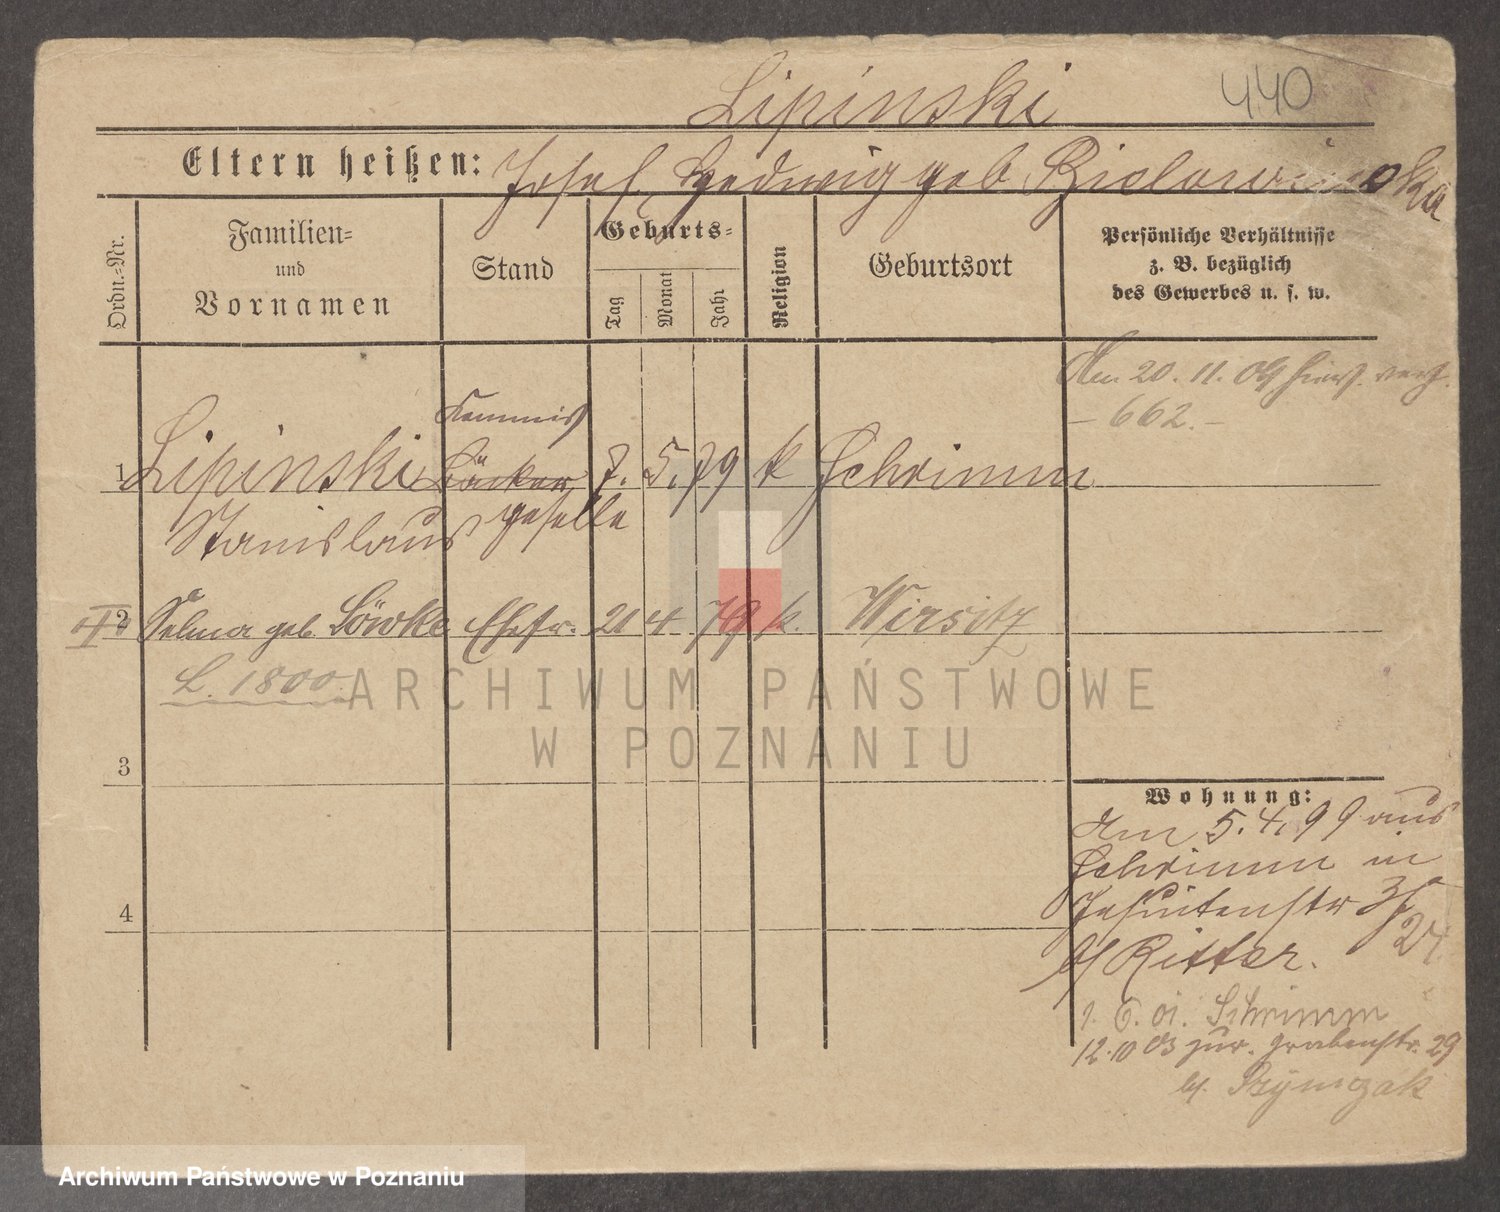 Lipinski
440
Eltern heißen: Josef, Hedwig geb. Bielawinska
Ordn.-Nr.
Familien-
und
Vornamen
Stand
Geburts-
Tag
Monat
Jahr
Religion
Geburtsort
Persönliche Verhältnisse
z. B. bezüglich
des Gewerbes u. s. w.
Am 20. 11. 09 hier
- 662. -
Kommis
1 Lipinski Bäcker 7. 5. 79 k Schrimm
Stanislaus geselle
II 2 Selma geb. Löwke Ehefr. 21 4. 79 k. Wirsitz
L. 1800.
ARCHIWUM PAŃSTWOWE
W POZNANIU
3
4
Wohnung:
Am 5. 4. 99 aus
Schrimm in
Jesuitenstr
24
b/ Ritter.
1. 6. 01. Schrimm
12.10 03 zur. Grabenstr. 29
b/. Szymczak
Archiwum Państwowe w Poznaniu